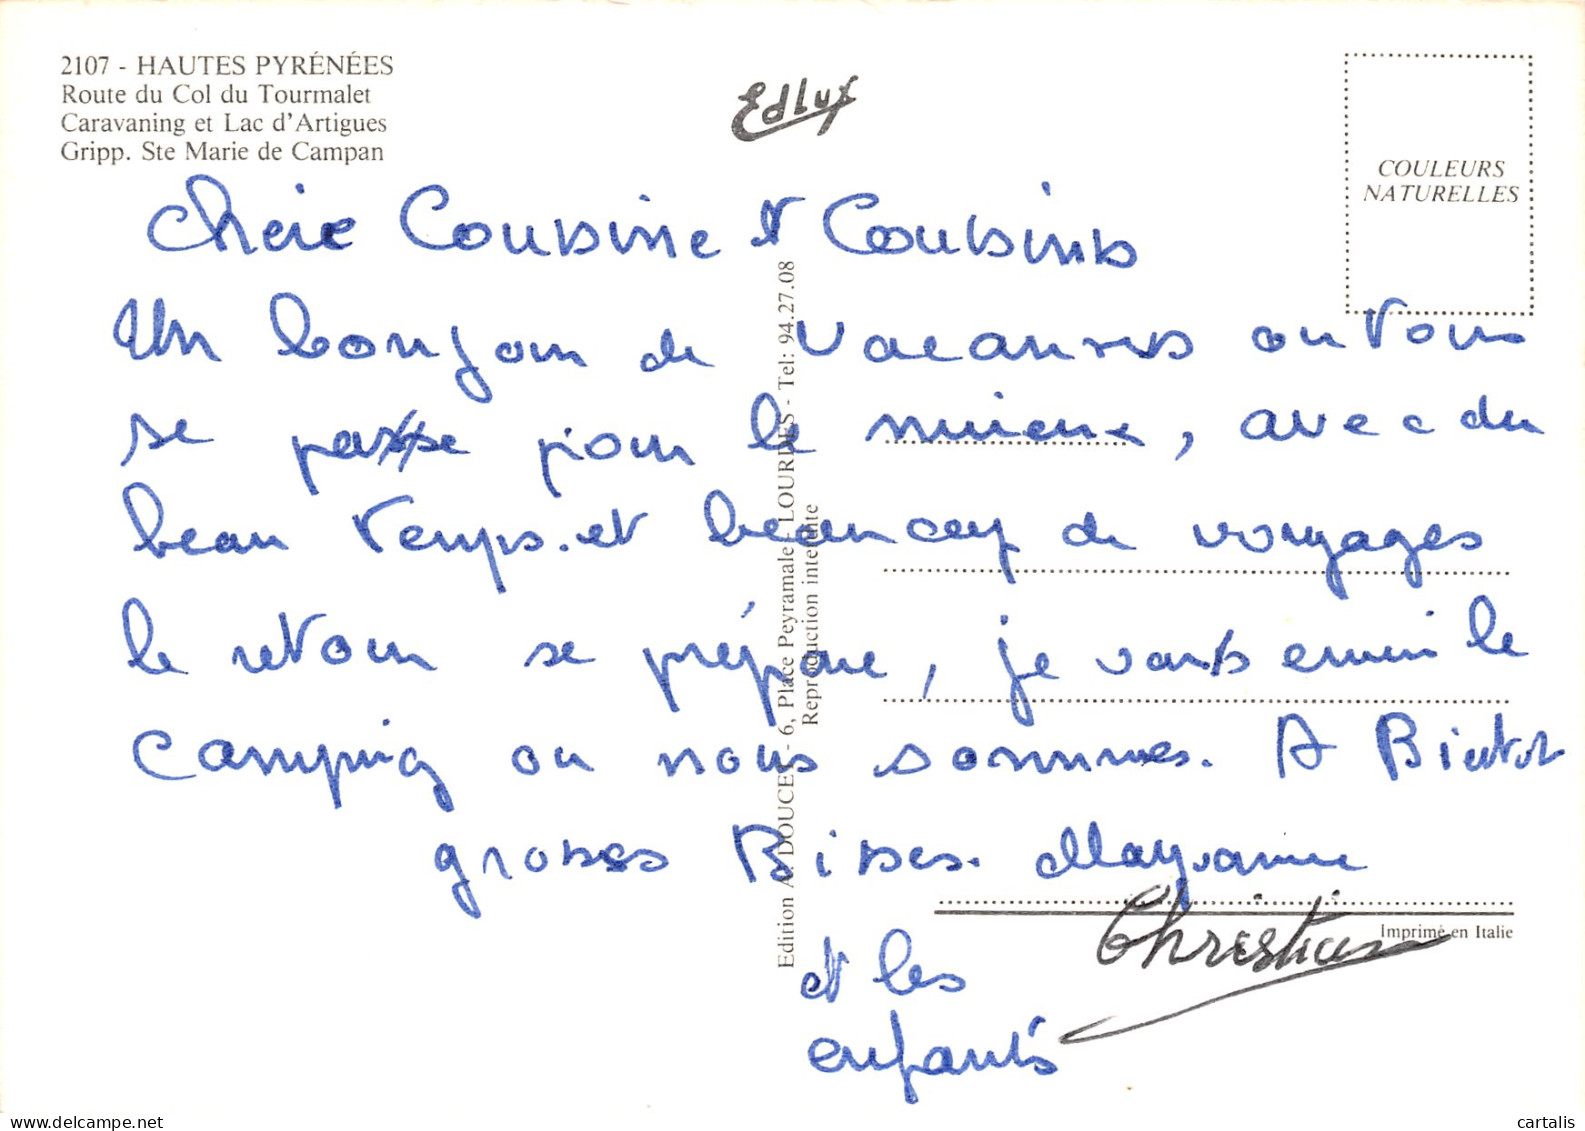 2107 - HAUTES PYRÉNÉES
Route du Col du Tourmalet
Caravaning et Lac d'Artigues
Gripp. Ste Marie de Campan
Edlux
COULEURS
NATURELLES
Chère Cousine et Cousins
Un bonjour de vacances ou tous
se passe pour le mieux, avec du
beau temps. et beaucoup de voyages
le retour se prépare, je vous envoi le
camping ou nous sommes. A Bientot
grosses Bises. Maryvonne
Christian
et les
enfants
Edition A. DOUCET - 6, Place Peyramale - LOURDES - Tel: 94.27.08
Reproduction interdite
Imprimé en Italie
delcampe.net
cartalis